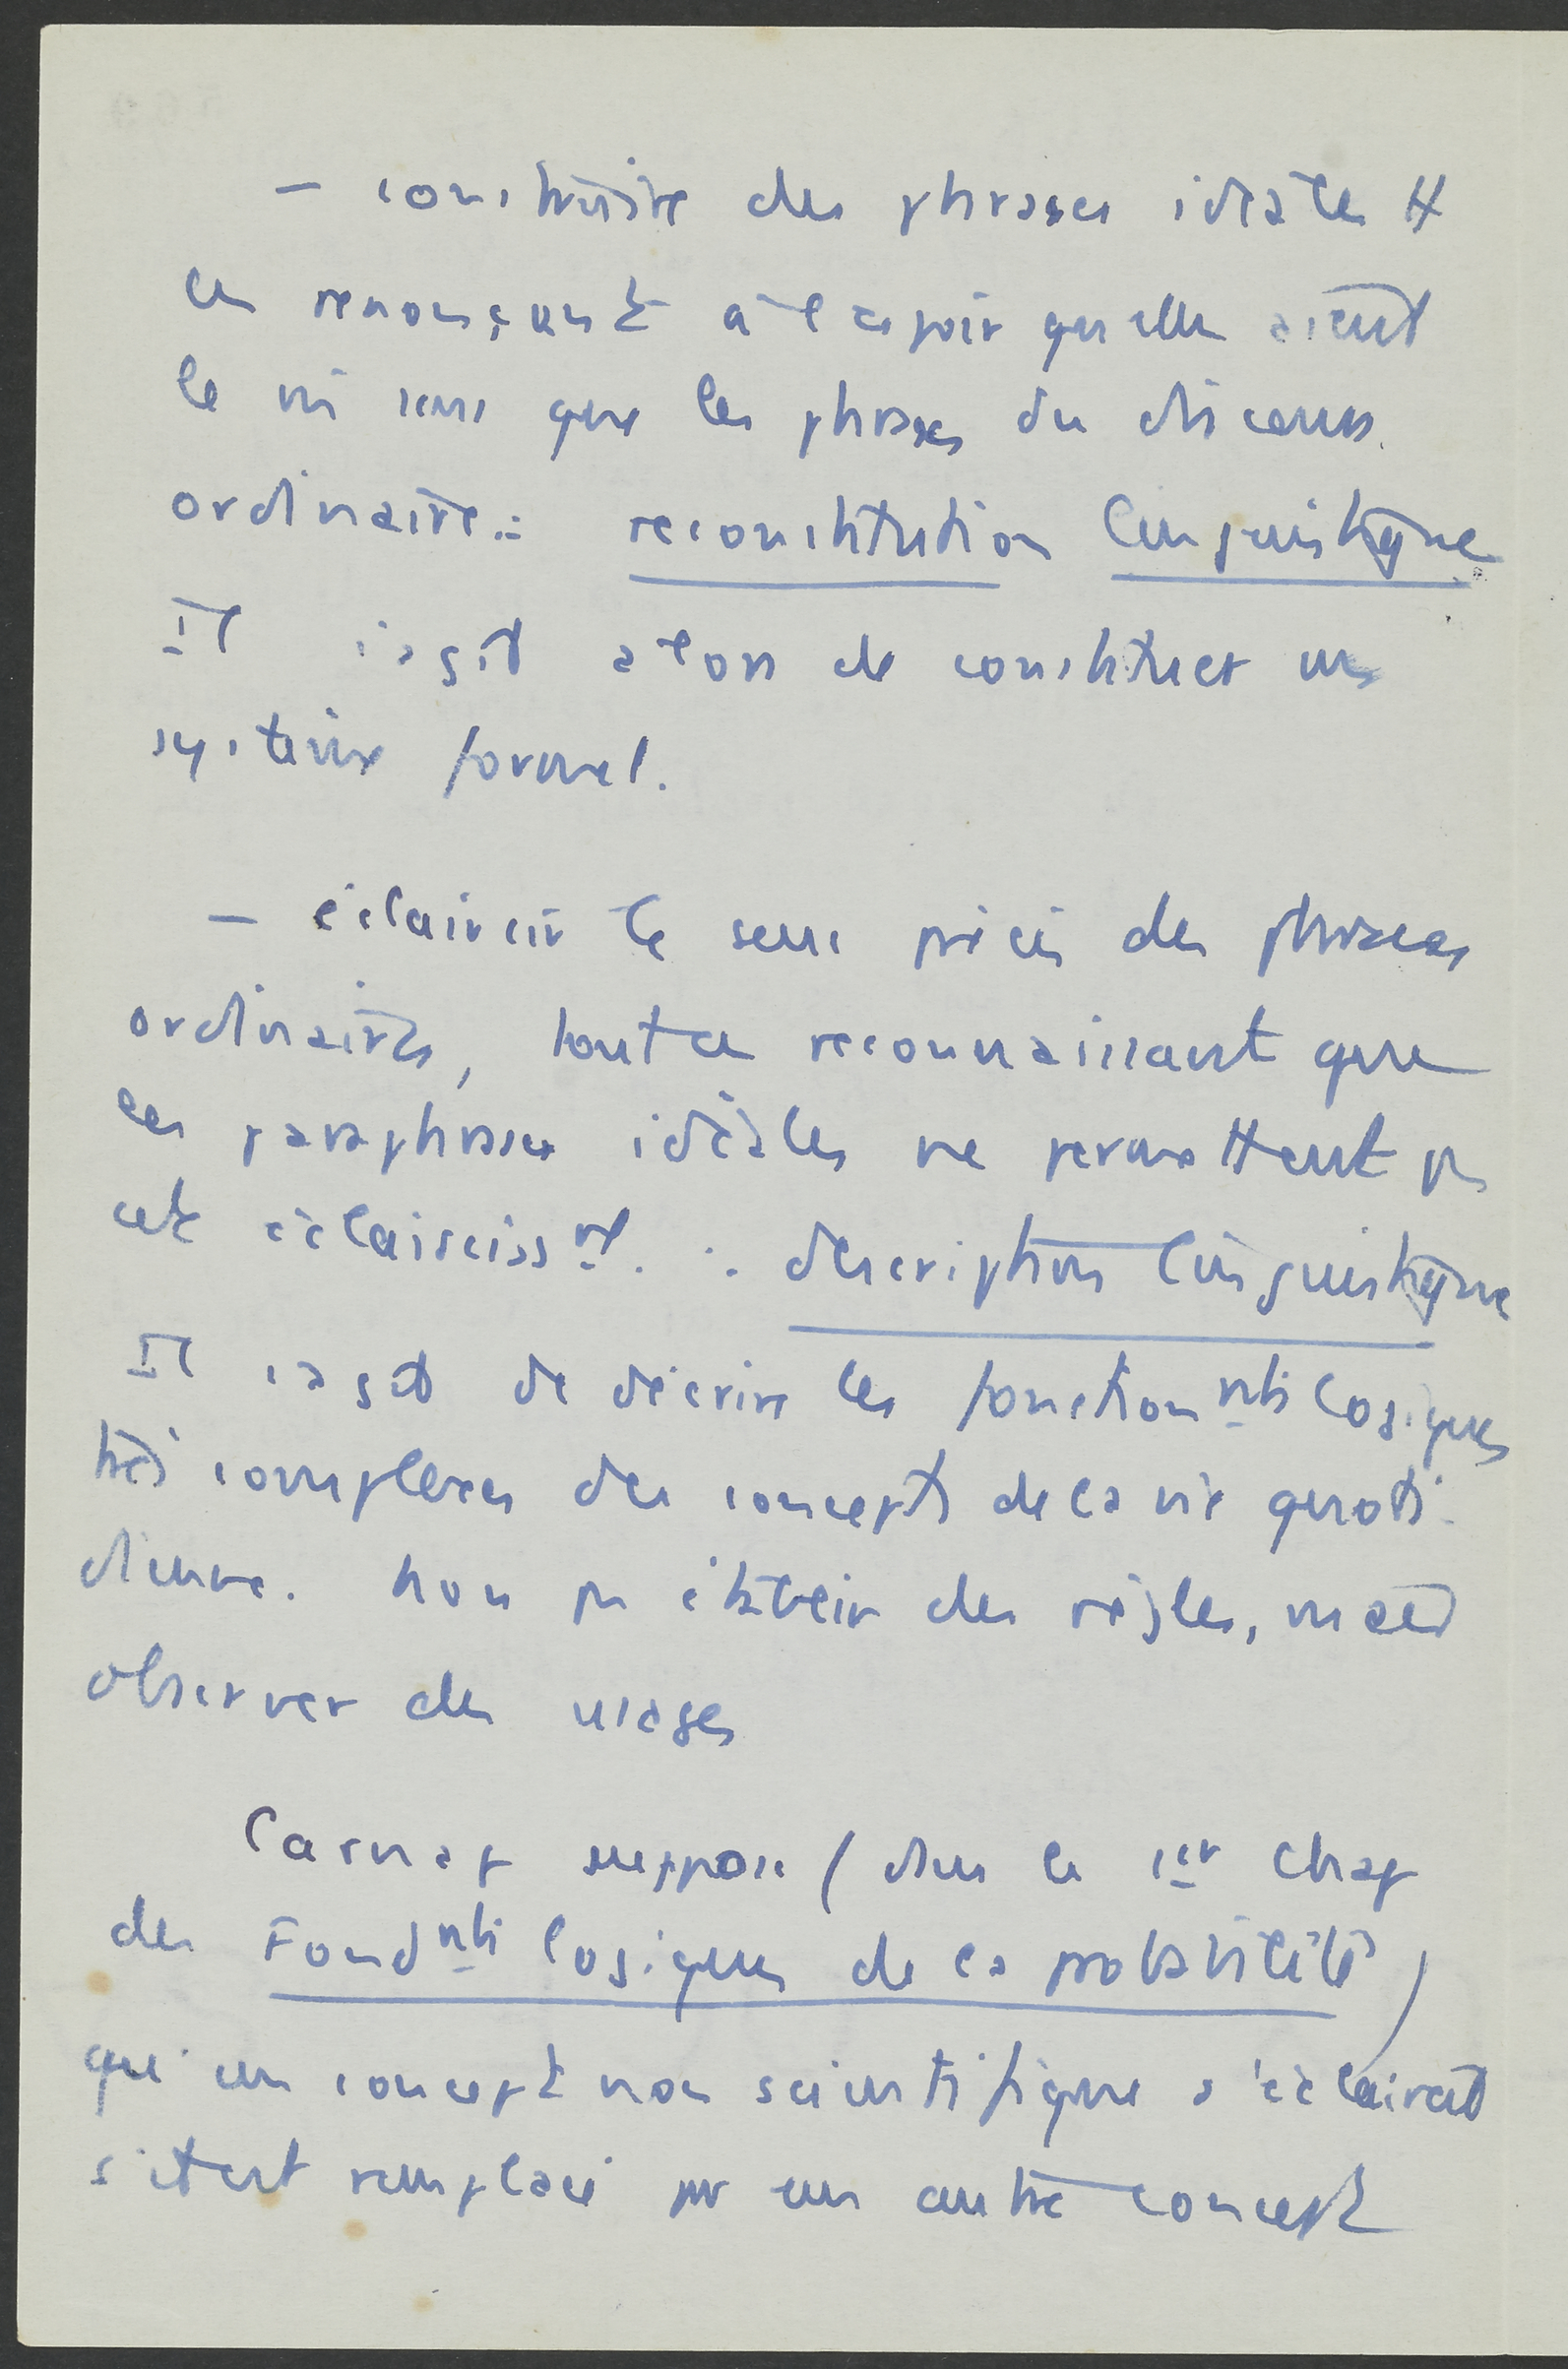 – construire des phrases idéales tt
en renonçant à l'espoir qu'elles aient
le m̂ sens que les phrases du discours
ordinaire : reconstitution linguistique
Il s'agit alors de constituer un
système formel.
– éclaircir le sens précis des phrases
ordinaires, tout en reconnaissant que
les paraphrases idéales ne permettent pas
cet éclaircisst. : description linguistique
Il s'agit de décrire les fonctionmts logiques
très complexes des concepts de la vie quoti-
dienne. Non pas établir des règles, mais
observer des usages
Carnap suppose (dans le 1er chap
des Fondmts logiques de la probabilité)
qu'un concept non scientifique s'éclaircit
s'il est remplacé par un autre concept